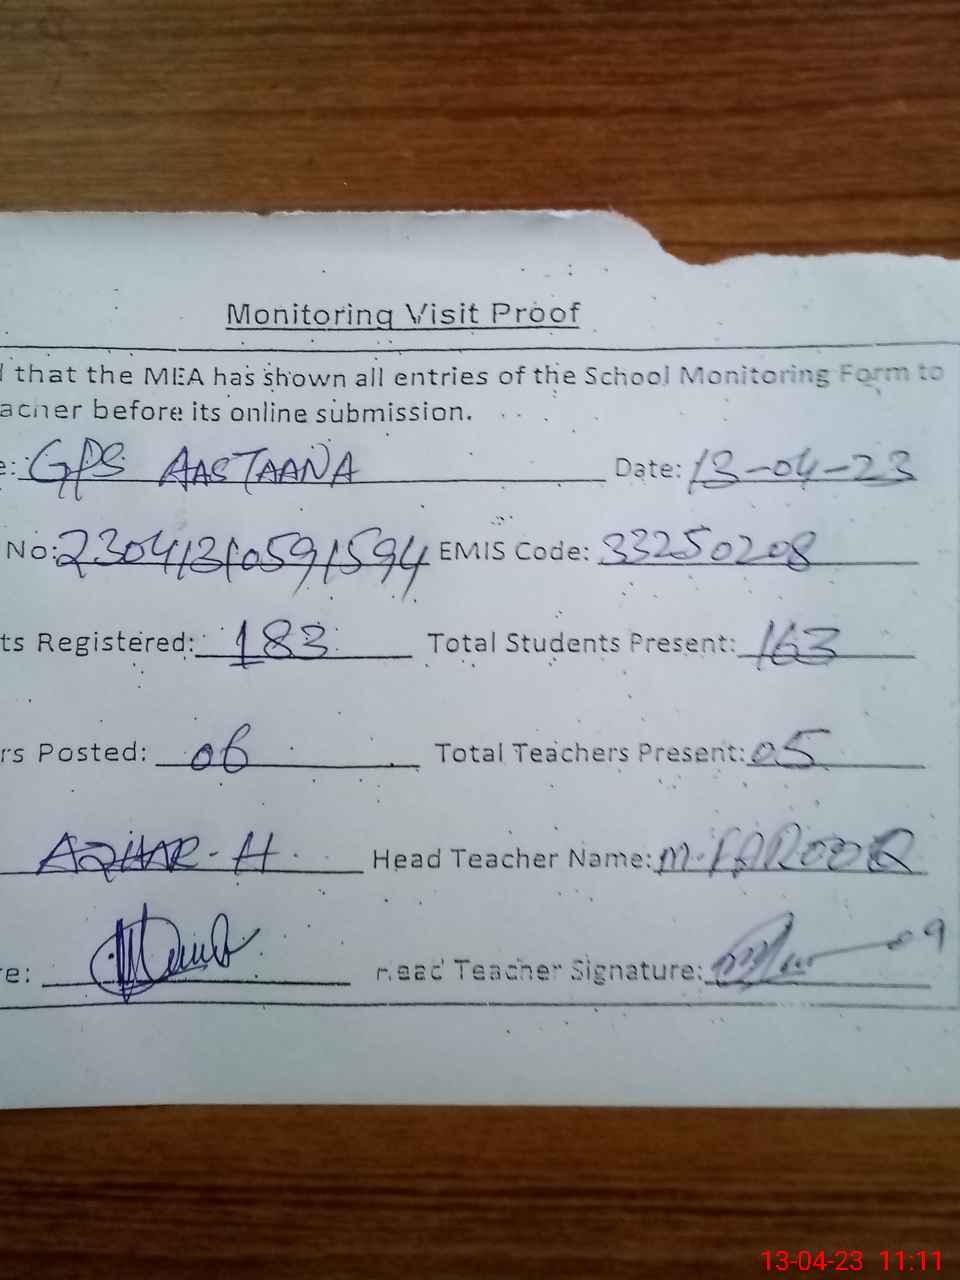 Monitoring Visit Proof
that the MEA has shown all entries of the School Monitoring Form to
acher before its online submission.
e: GPS AASTAANA Date: 13-04-23
No: 23041310591594 EMIS Code: 33250208
ts Registered: 183 Total Students Present: 163
rs Posted: 06 Total Teachers Present: 05
AZHAR-H. Head Teacher Name: M. FAROOQ
re: Head Teacher Signature:
13-04-23 11:11